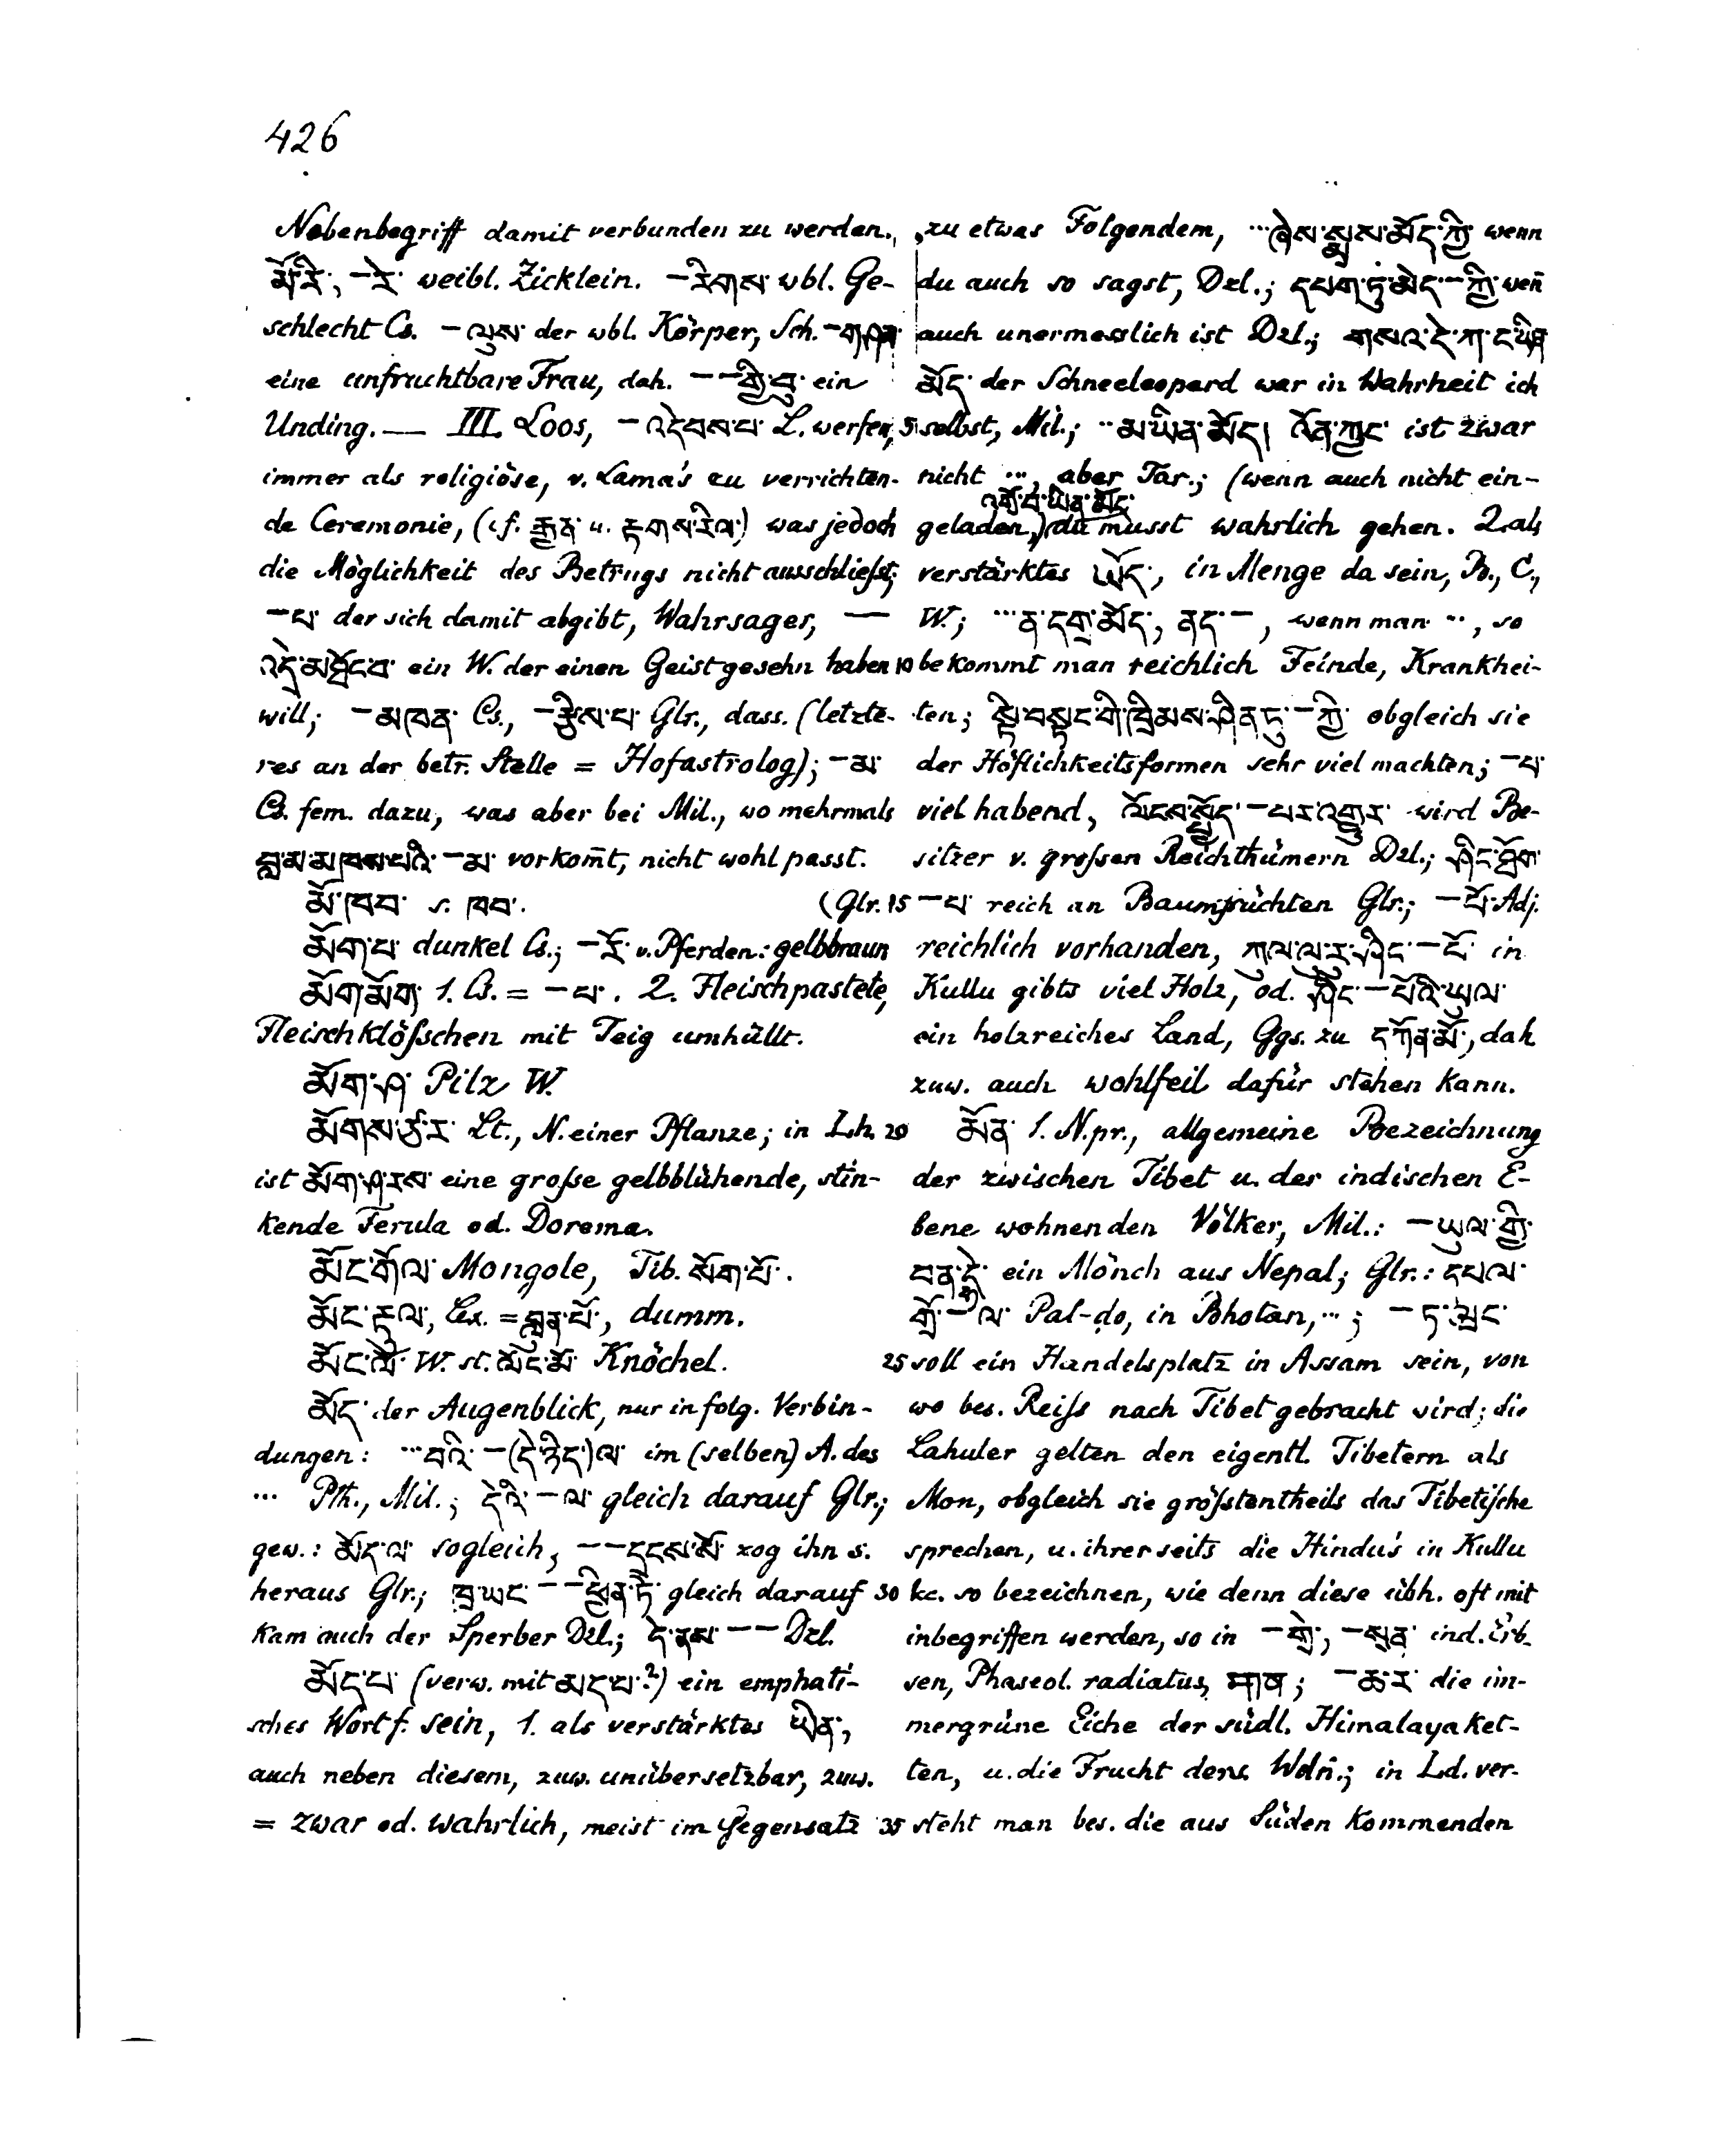 426
Nebenbegriff damit verbunden zu werden.
མོ་རི་, –རེ་ weibl. Zicklein. –རིགས་ wbl. Ge-
schlecht Cs. –ལུས་ der wbl. Körper, Sch. –གཤམ་
eine unfruchtbare Frau, dah. – –གྱི་བུ་ ein
Unding. — III. Loos, –འདེབས་པ་ L. werfen,
immer als religiöse, v. Lama's zu verrichten-
de Ceremonie, (cf. རྒྱན་ u. རྟགས་རིལ་) was jedoch
die Möglichkeit des Betrugs nicht ausschließt;
–པ་ der sich damit abgibt, Wahrsager, —
འདྲེ་མཐོང་བ་ ein W. der einen Geist gesehn haben
will; –མཁན་ Cs., –རྩིས་པ་ Glr., dass. (letzte-
res an der betr. Stelle = Hofastrolog); –མ་
Cs. fem. dazu, was aber bei Mil., wo mehrmals
བླ་མ་མཁས་པའི་ –མ་ vorkom̄t, nicht wohl passt.
མོ་ཁབ་ s. ཁབ་.
མོག་པ་ dunkel Cs.; –རོ་ v. Pferden: gelbbraun (Glr.
མོག་མོག་ 1. Cs. = –པ་. 2. Fleischpastete,
Fleischklößchen mit Teig umhüllt.
མོག་ཤ་ Pilz W.
མོགས་ཙ་ར་ Lt., N. einer Pflanze; in Lh.
ist མོག་ཤ་རས་ eine große gelbblühende, stin-
kende Ferula od. Dorema.
མོང་གོལ་ Mongole, Tib. སོག་པོ་.
མོང་རྟུལ་, Lex. = བླུན་པོ་, dumm.
མོང་ལོ་ W. st. ལོང་མོ་ Knöchel.
མོད་ der Augenblick, nur in folg. Verbin-
dungen: ··· བའི་ –(དེ་ཉིད་)ལ་ im (selben) A. des
··· Pth., Mil.; དེའི་ –ལ་ gleich darauf Glr.;
gew.: མོད་ལ་ sogleich, – –དྲངས་སོ་ zog ihn s.
heraus Glr.; ཁྲ་ཡང་ – –ཕྱིན་ཏེ་ gleich darauf
kam auch der Sperber Dzl.; དེ་ནས་ – – Dzl.
མོད་པ་ (verw. mit མད་པ་?) ein emphati-
sches Wort f. sein, 1. als verstärktes ཡིན་,
auch neben diesem, zuw. unübersetzbar, zuw.
= zwar od. wahrlich, meist im Gegensatz
zu etwas Folgendem, ··· ཞེས་སྨྲས་མོད་ཀྱི་ wenn
du auch so sagst, Dzl.; དཔག་ཏུ་མེད་–ཀྱི་ wen̄
auch unermesslich ist Dzl.; གསའ་དེ་ཀ་ང་ཡིན་
མོད་ der Schneeleopard war in Wahrheit ich
5 selbst, Mil.; ·· མ་ཡིན་མོད། འོན་ཀྱང་ ist zwar
nicht ···, aber Tar.; (wenn auch nicht ein-
འགྲོ་བ་ཡིན་མོད་
geladen,) du musst wahrlich gehen. 2. als
verstärktes ཡོད་, in Menge da sein, B., C.,
W.; ··· ན་དགྲ་མོད་, ནད་ –, wenn man ···, so
10 bekommt man reichlich Feinde, Krankhei-
ten; སྟི་བསྟང་གི་ཁྲིམས་ཤིན་ཏུ་ –ཀྱི་ obgleich sie
der Höflichkeitsformen sehr viel machten; –པ་
viel habend, ལོངས་སྤྱོད་ –པར་འགྱུར་ wird Be-
sitzer v. großen Reichthümern Dzl.; ཤིང་ཐོག་
15 –པ་ reich an Baumfrüchten Glr.; –པོ་ Adj.
reichlich vorhanden, ཀུལ་ལུ་ར་ཤིང་ –པོ་ in
Kullu gibts viel Holz, od. ཤིང་ –པོའི་ཡུལ་
ein holzreiches Land, Ggs. zu དཀོན་མོ་, dah
zuw. auch wohlfeil dafür stehen kann.
20 མོན་ 1. N.pr., allgemeine Bezeichnung
der zwischen Tibet u. der indischen E-
bene wohnenden Völker, Mil.: –ཡུལ་གྱི་
བན་དྷེ་ ein Mönch aus Nepal; Glr.: དཔལ་
གྲོ་ –ལ་ Pal-ḍo, in Bhotan, ···; –ཏ་ལྦང་
25 soll ein Handelsplatz in Assam sein, von
wo bes. Reiß nach Tibet gebracht wird; die
Lahuler gelten den eigentl. Tibetern als
Mon, obgleich sie größtentheils das Tibetische
sprechen, u. ihrerseits die Hindu's in Kullu
30 &c. so bezeichnen, wie denn diese übh. oft mit
inbegriffen werden, so in –གྲེ་, –སྲན་ ind. Erb-
sen, Phaseol. radiatus, माष; –ཆ་ར་ die im-
mergrüne Eiche der südl. Himalayaket-
ten, u. die Frucht ders. Wdn̄.; in Ld. ver-
35 steht man bes. die aus Süden kommenden